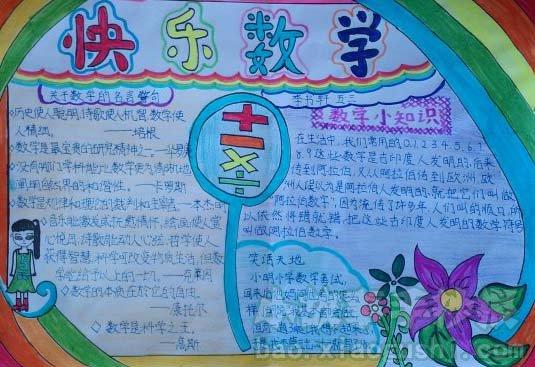 快乐数学
关于数学的名言警句
历史使人聪明,诗歌使人机智,数学使
人精细。 ——培根
数学是最宝贵的研究精神之一。——华罗庚
没有那门学科能比数学更为清晰地
阐明自然界的和谐性。——卡罗斯
数学是规律和理论的裁判和主宰者。——本杰明
音乐能激发或抚慰情怀,绘画使人赏
心悦目,诗歌能动人心弦,哲学使人
获得智慧,科学可改变物质生活,但数
学能给予以上的一切。——克莱因
数学的本质在於它的自由。
——康托尔
数学是科学之王。
——高斯
+
-
×
÷
李书轩 五三
数学小知识
在生活中,我们常用的0.1.2.3.4.5.6.7
8.9这些数字是古印度人发明的,后来
传到阿拉伯,又从阿拉伯传到欧洲,欧
洲人误以为是阿拉伯人发明的,就把它们叫做
“阿拉伯数字”,因为流传了许多年,人们叫的顺口,所
以依然将错就错,把这些古印度人发明的数字符号
叫做阿拉伯数字。
笑话天地
小明小学数学考试,
回来后